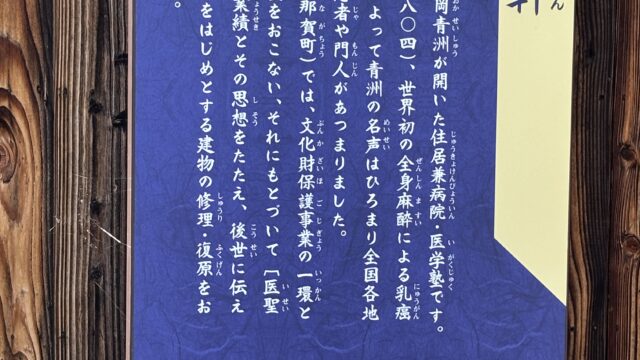 岡青洲が開いた住居兼病院・医学塾です。
八〇四)、世界初の全身麻酔による乳癌
よって青洲の名声はひろまり全国各地
者や門人があつまりました。
那賀町)では、文化財保護事業の一環と
をおこない、それにもとづいて［医聖
業績とその思想をたたえ、後世に伝え
をはじめとする建物の修理・復原をお